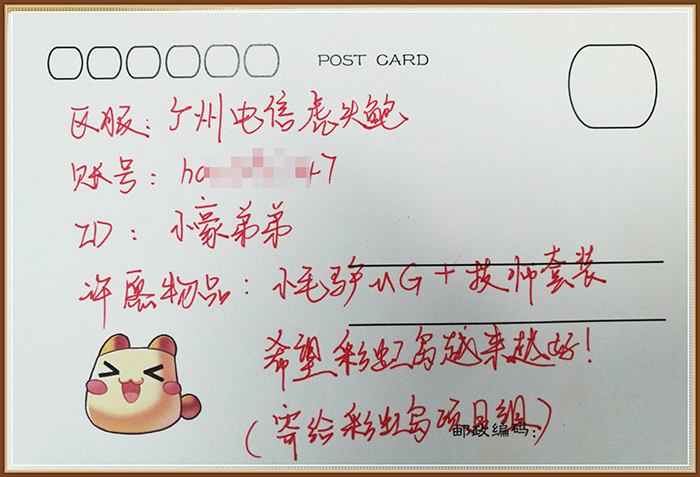 POST CARD
区服：广州电信虎头鲍
账号：ha 17
ID：小豪弟弟
许愿物品：小毛驴UG+技师套装
希望彩虹岛越来越好！
（寄给彩虹岛项目组）
邮政编码：